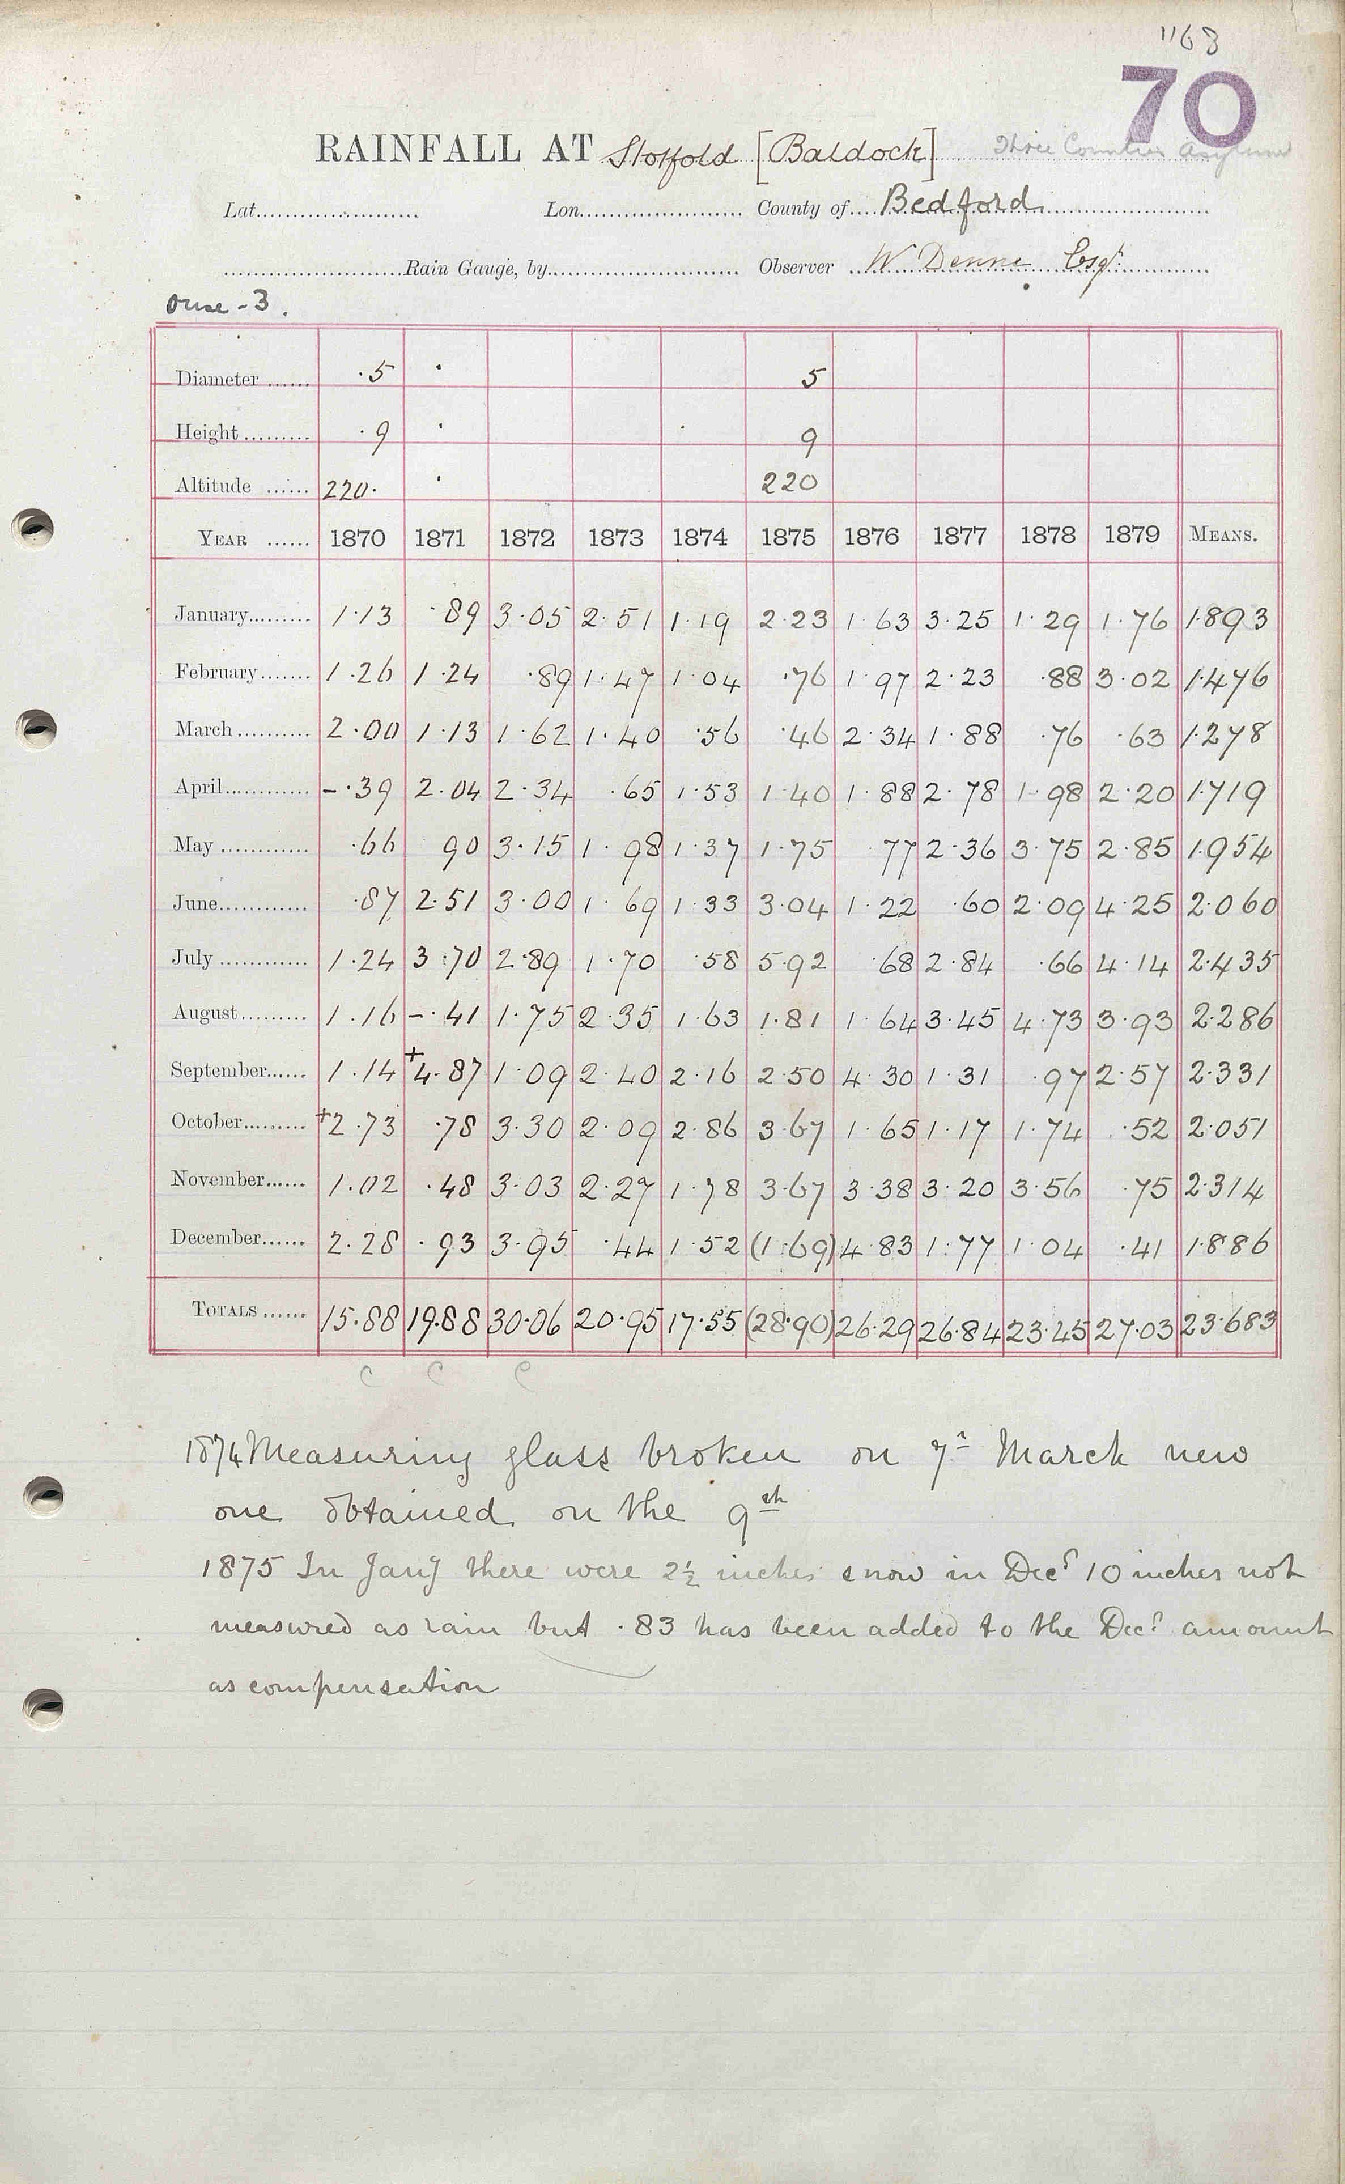 "68
70
RAINFALL AT Stotfold [Baldock] Three Counties Asylum
Lat. Lon. County of Bedford
Rain Gauge, by Observer W Denne Esqr
Ouse - 3.
Diameter ·5 · 5
Height ·9 · 9
Altitude 220· · 220
YEAR 1870 1871 1872 1873 1874 1875 1876 1877 1878 1879 MEANS.
January 1·13 ·89 3·05 2·51 1·19 2·23 1·63 3·25 1·29 1·76 1·893
February 1·26 1·24 ·89 1·47 1·04 ·76 1·97 2·23 ·88 3·02 1·476
March 2·00 1·13 1·62 1·40 ·56 ·46 2·34 1·88 ·76 ·63 1·278
April -·39 2·04 2·34 ·65 1·53 1·40 1·88 2·78 1·98 2·20 1·719
May ·66 90 3·15 1·98 1·37 1·75 ·77 2·36 3·75 2·85 1·954
June ·87 2·51 3·00 1·69 1·33 3·04 1·22 ·60 2·09 4·25 2·060
July 1·24 3·70 2·89 1·70 ·58 5·92 ·68 2·84 ·66 4·14 2·435
August 1·16 -·41 1·75 2·35 1·63 1·81 1·64 3·45 4·73 3·93 2·286
September 1·14 +4·87 1·09 2·40 2·16 2·50 4·30 1·31 ·97 2·57 2·331
October +2·73 ·78 3·30 2·09 2·86 3·67 1·65 1·17 1·74 ·52 2·051
November 1·02 ·48 3·03 2·27 1·78 3·67 3·38 3·20 3·56 ·75 2·314
December 2·28 ·93 3·95 ·44 1·52 (1·69) 4·83 1·77 1·04 ·41 1·886
TOTALS 15·88 19·88 30·06 20·95 17·55 (28·90) 26·29 26·84 23·45 27·03 23·683
C C C
1874 Measuring glass broken on 7th March new
one obtained on the 9th
1875 In Jany there were 2½ inches snow in Decr 10 inches not
measured as rain but ·83 has been added to the Decr amount
as compensation